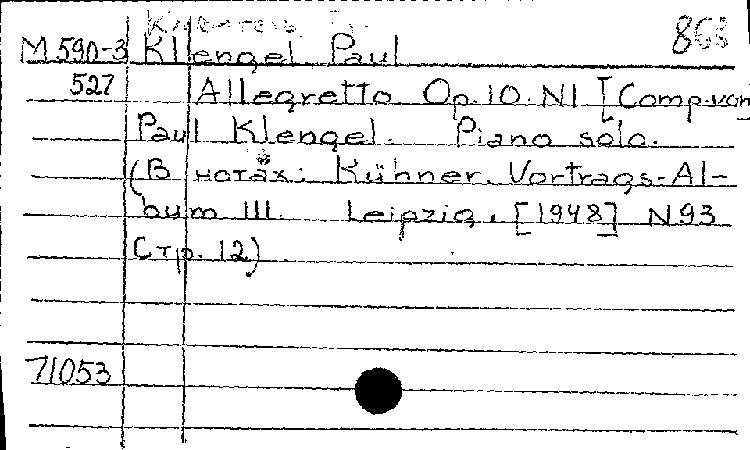 863
M 590-3 Klengel Paul
527 Allegretto Op. 10. N1 [Comp. von
Paul Klengel. Piano solo.
(В нотах: Kühner. Vortrags-Al-
bum III. Leipzig. [1948] N 93
Стр. 12)
71053